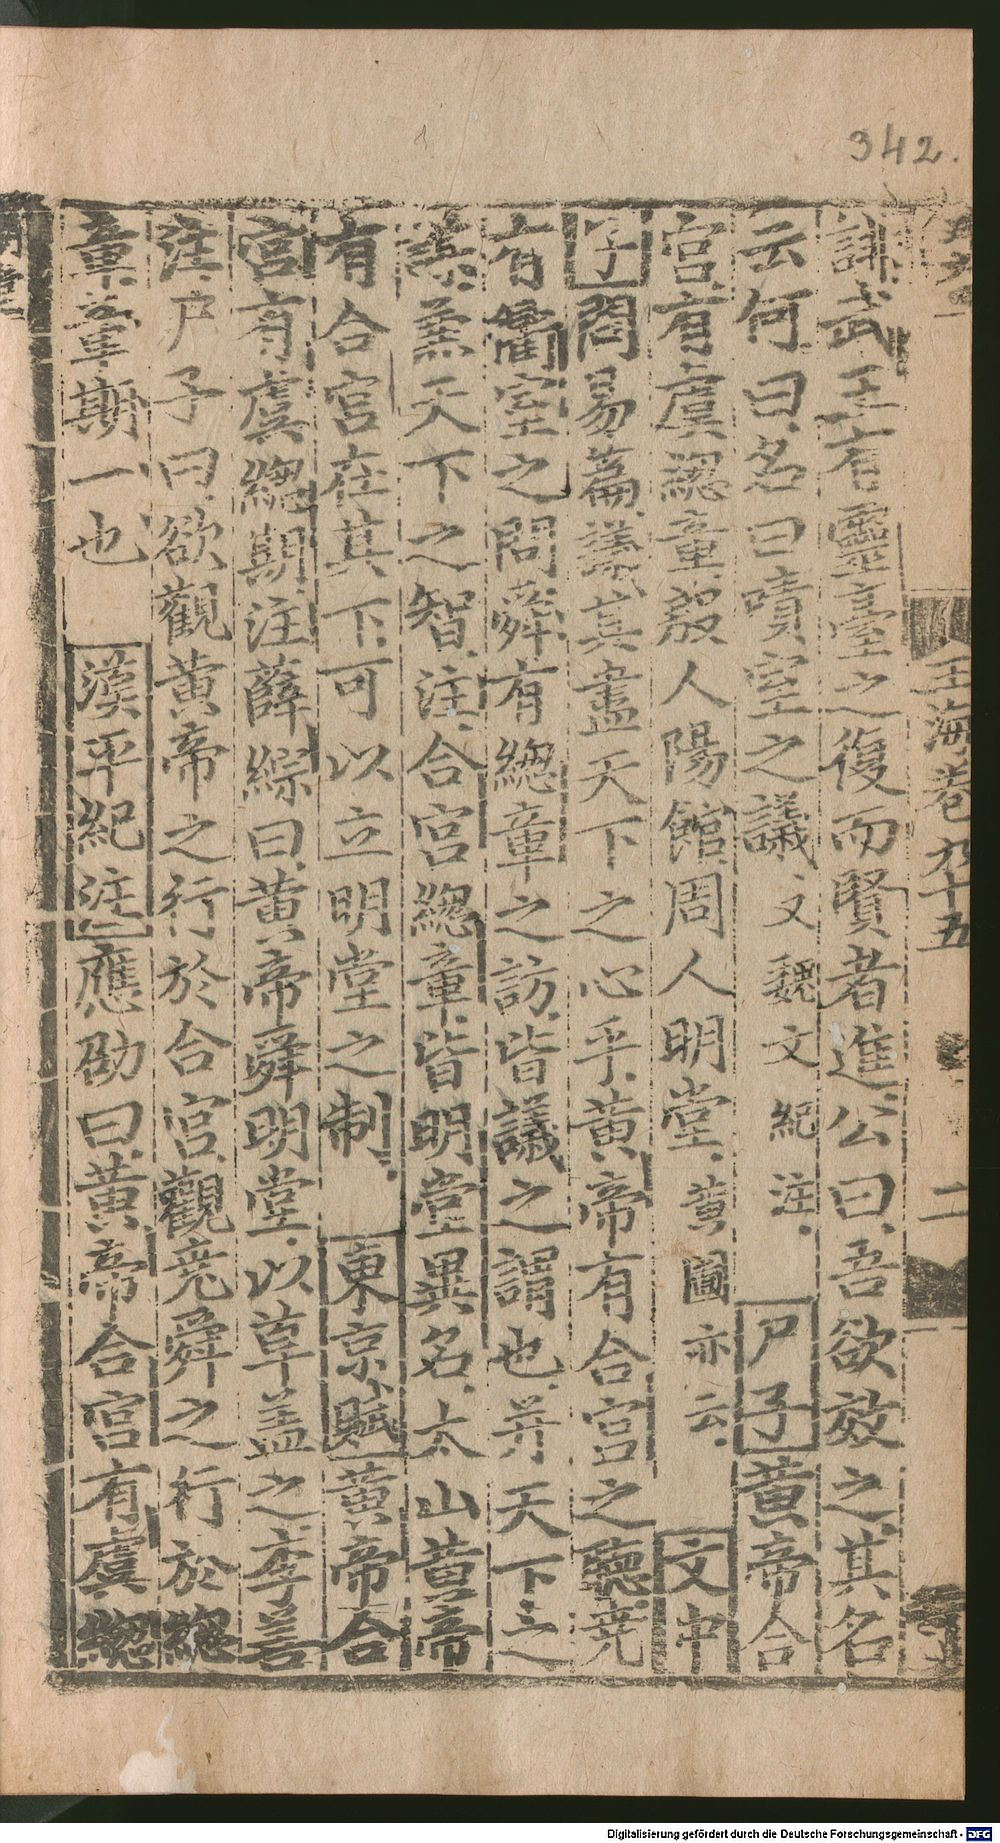 342.
玉海卷九十五
二
誹武王有靈臺之復而賢者進公曰吾欲效之其名
云何曰名曰嘖室之議文魏文紀注尸子黃帝合
宮有虞總章殷人陽館周人明堂黃圖亦云文中
子問易篇議其盡天下之心乎黃帝有合宮之聽堯
有衢室之問舜有總章之訪皆議之謂也并天下之
兼天下之智注合宮總章皆明堂異名太山黃帝
有合宮在其下可以立明堂之制東京賦黃帝合
宮有虞總期注薛綜曰黃帝舜明堂以草蓋之李善
注尸子曰欲觀黃帝之行於合宮觀堯舜之行於總
章章期一也漢平紀注應劭曰黃帝合宮有虞總
Digitalisierung gefördert durch die Deutsche Forschungsgemeinschaft - DFG